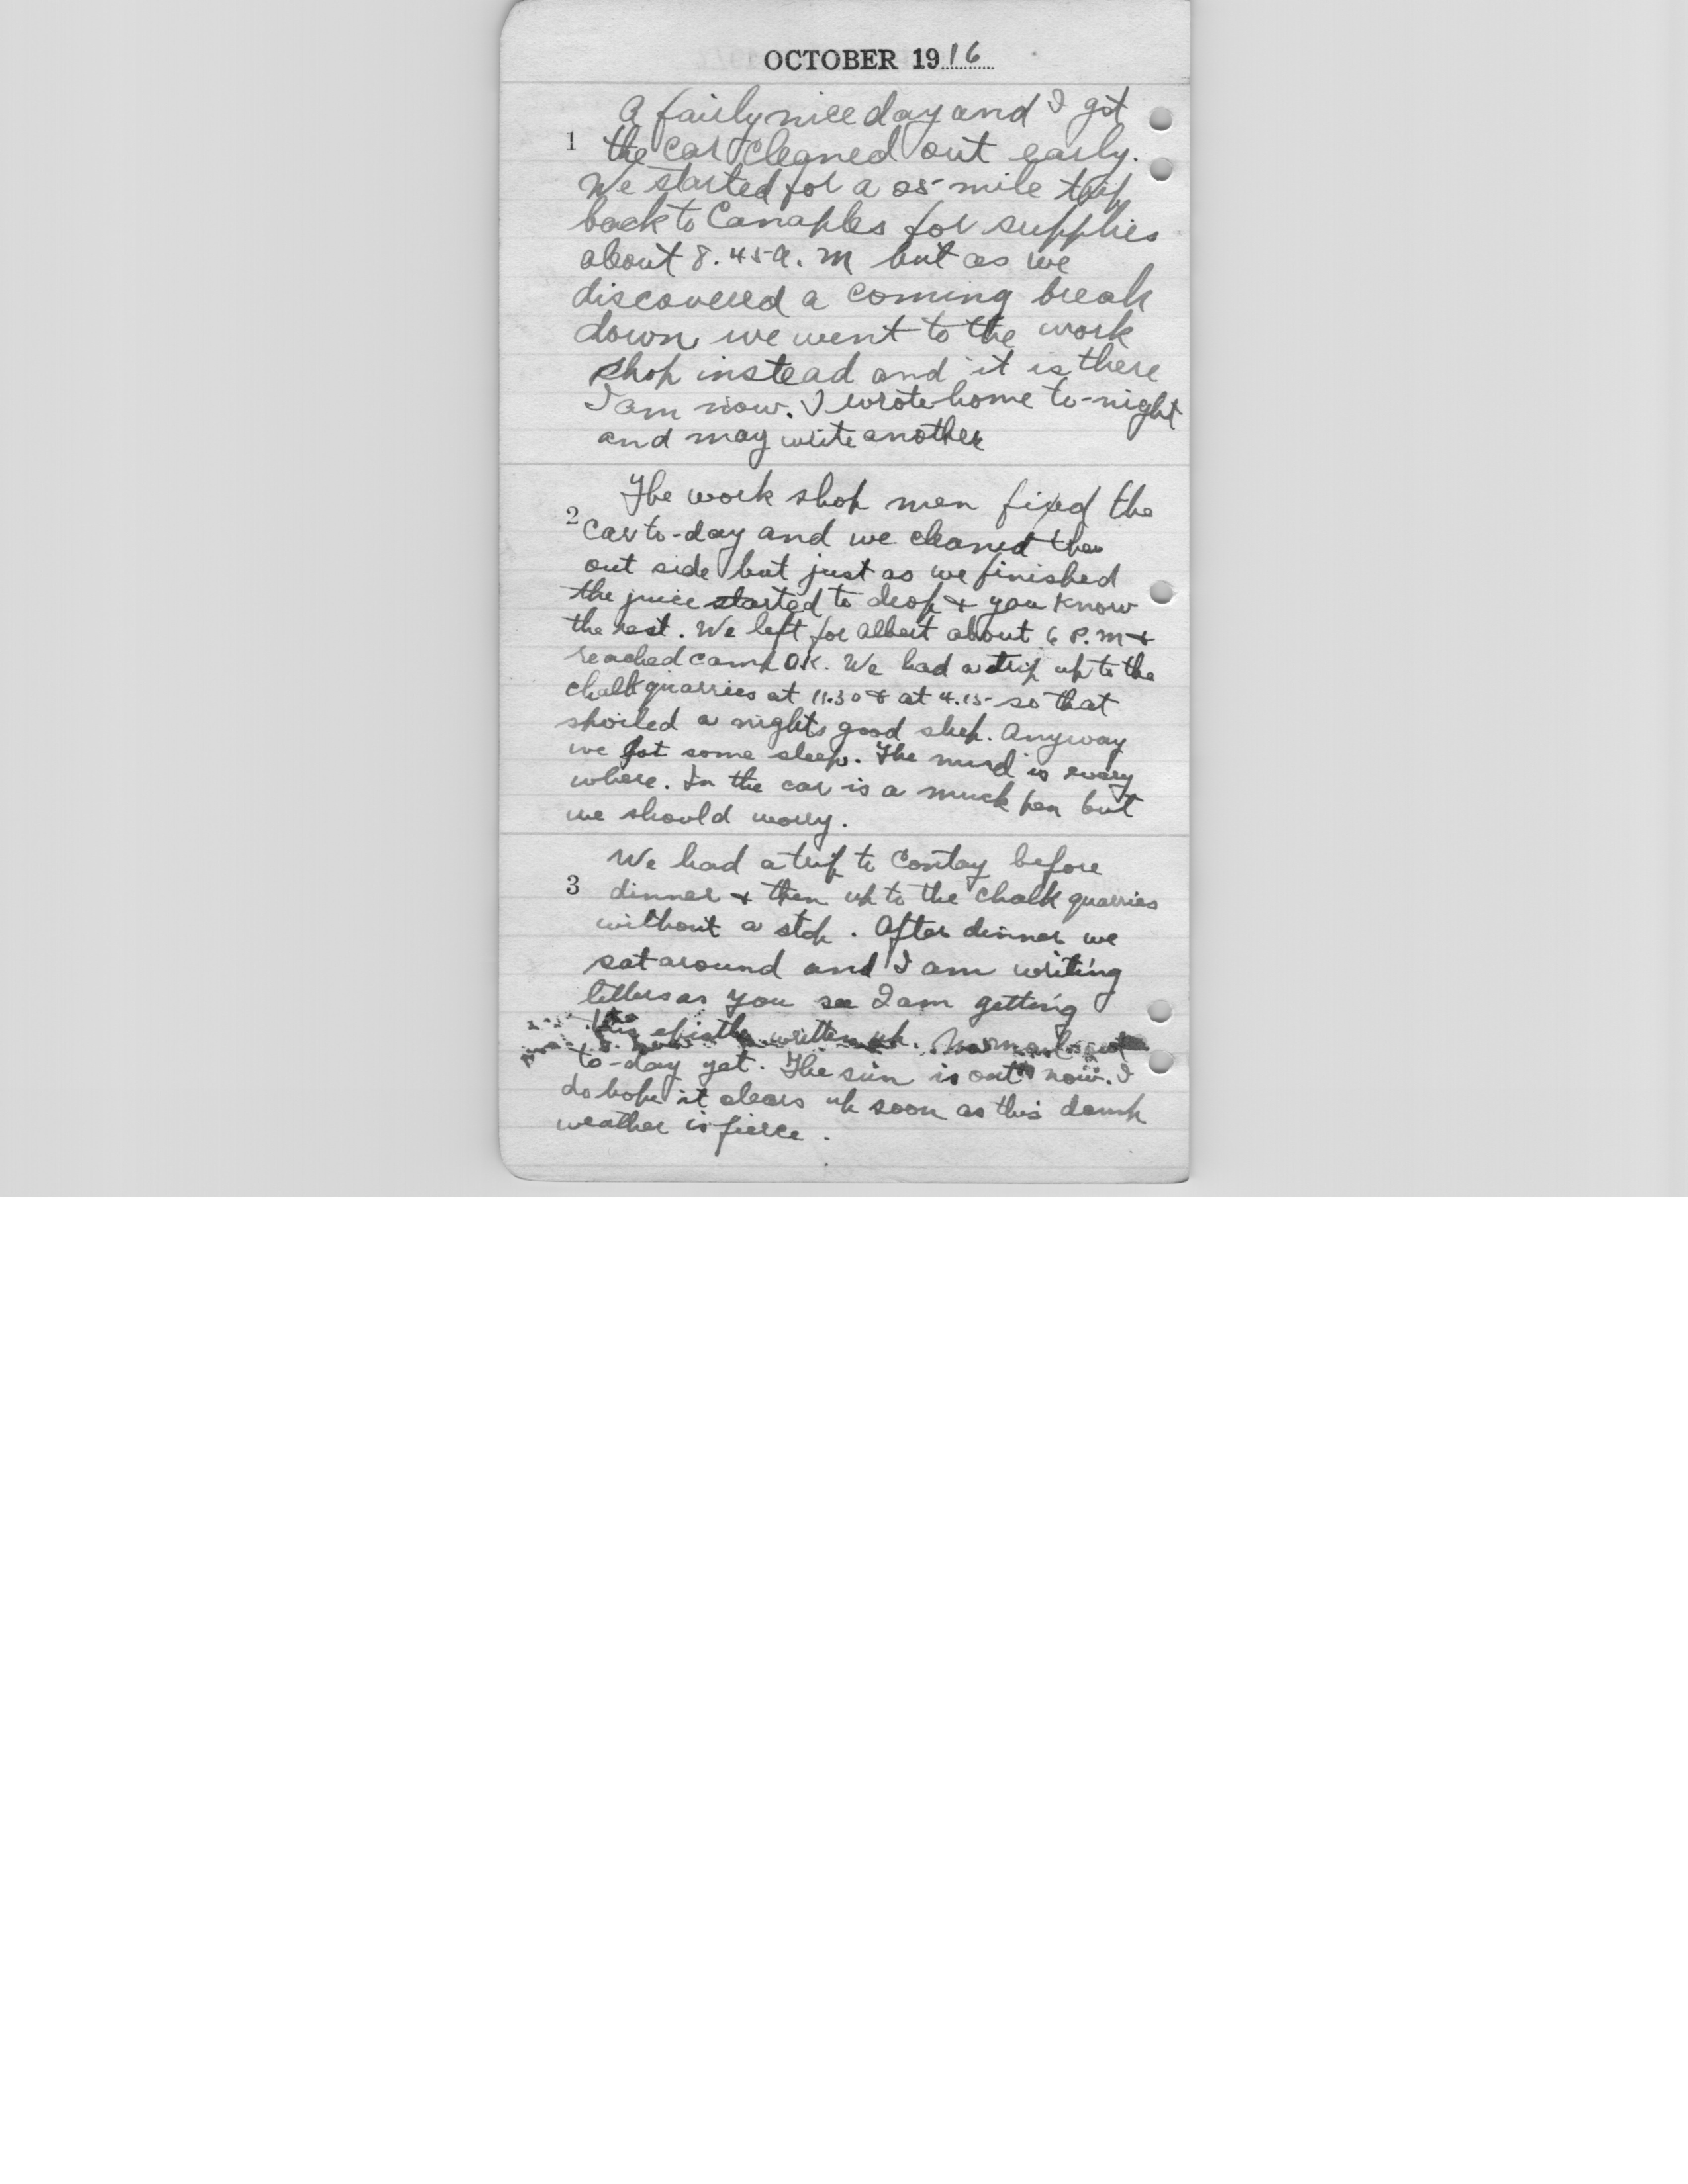 OCTOBER 1916
A fairly nice day and I got
1 the car cleaned out early.
We started for a 25 mile trip
back to Canaples for supplies
about 8.45 A.M but as we
discovered a coming break
down we went to the work
shop instead and it is there
I am now. I wrote home to-night
and may write another
The work shop men fixed the
2 car to-day and we cleaned the
out side but just as we finished
the juice started to drop & you know
the rest. We left for Albert about 6 P.M &
reached camp OK. We had a trip up to the
chalk quarries at 11.30 & at 4.15 so that
spoiled a nights good sleep. Anyway
we got some sleep. The mud is every
where. In the car is a muck pen but
we should worry.
We had a trip to Contay before
3 dinner & then up to the chalk quarries
without a stop. After dinner we
sat around and I am writing
letters as you see I am getting
this epistle written up. No mail
to-day yet. The sun is out now. I
do hope it clears up soon as this damp
weather is fierce.